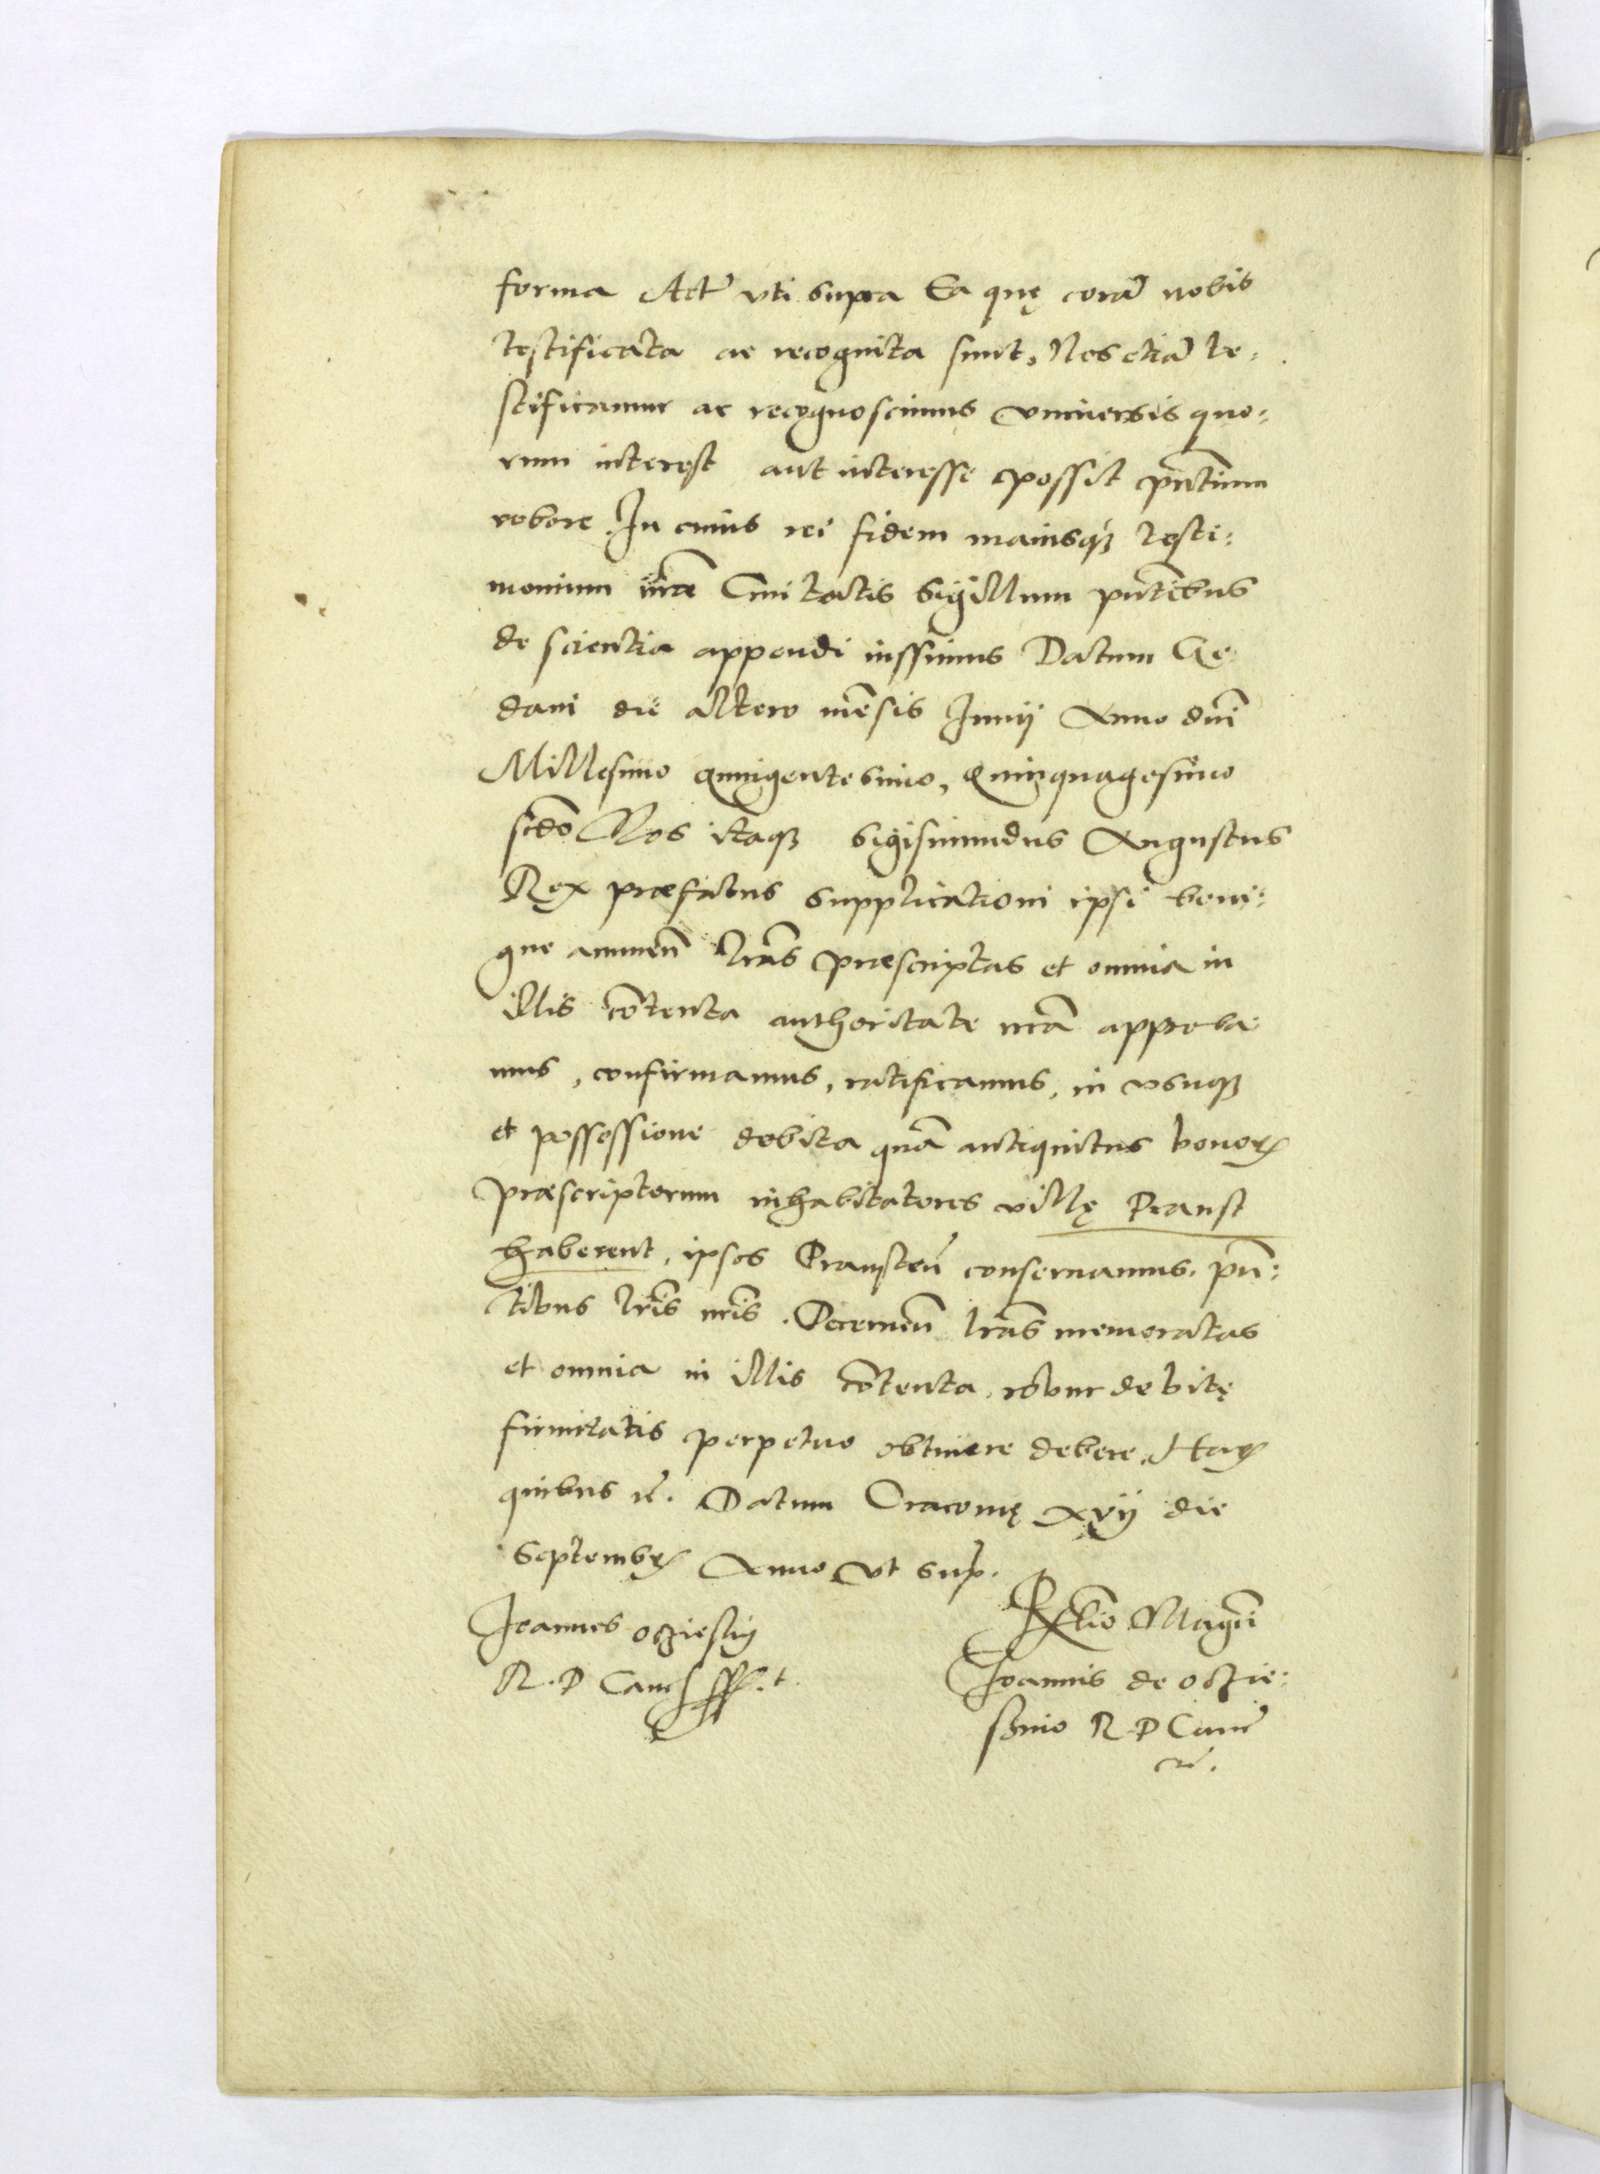 forma Act̃ vti supra Ea quę corã nobis
testificata ac recognita sunt, Nos etiã te:
stificamur ac recognoscimus vniuersis quo:
rum interest aut interesse possit pñtium
robore. In cuius rei fidem maiusqȝ testi:
monium nr̃æ Ciuitatis Sigillum pñtibus
de scientia appendi iussimus Datum Ge
dani die altero mẽsis Junij Anno dni̅
Millesimo quingentesimo, Quinquagesimo
scd̃o Nos itaqȝ Sigismundus Augustus
Rex præfatus supplicationi ipsi beni:
gne annuen̅ lr̃as præscriptas et omnia in
illis cõtenta authoritate nr̃a approba
mus, confirmamus, ratificamus, in vsuqȝ
et possessione debita quã antiquitus bonoꝝ
præscriptorum inhabitatores villę Pranst
haberent, ipsos Pransten̅ conseruamus. pñ:
tibus lr̃is nr̃is. Decernen̅ lr̃as memoratas
et omnia in illis cõtenta, robur debitę
firmitatis perpetuo obtinere debere. Haꝝ
quibus rc̃. Datum Cracouię xvij die
Septembꝝ Anno vt sup.
Joannes oczieski
R. P Canc̃ sst
Relio̅ Magci̅
Joannis de oczie:
szino R. P Canc̃
rc̃.